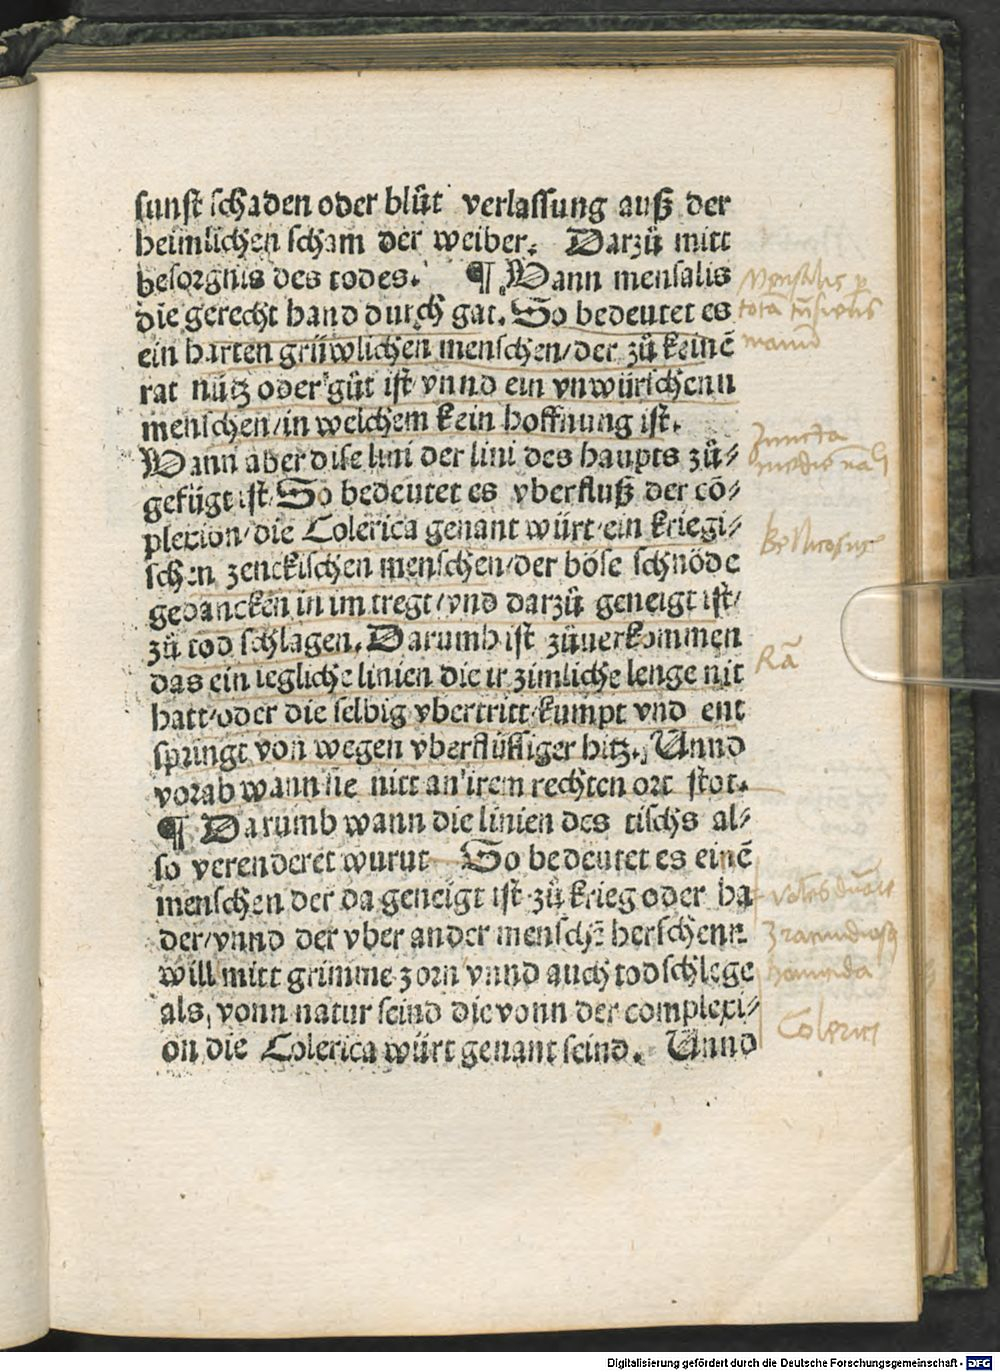 sunst schaden oder blůt verlassung auß der
heimlichen scham der weiber. Darzů mitt
besorgnis des todes. ¶ Wann mensalis
die gerecht hand durch gat. So bedeutet es
ein harten grüwlichen menschen/der zů keinē
rat nütz oder gůt ist/vnnd ein vnwürschenn
menschen/in welchem kein hoffnung ist.
Wann aber dise lini der lini des haupts zů-
gefügt ist. So bedeutet es vberfluß der cō-
plexion/die Colerica genant würt/ein kriegi-
schen zenckischen menschen/der böse schnöde
gedancken in im tregt/vnd darzů geneigt ist/
zů tod schlagen. Darumb ist zůuerkommen
das ein iegliche linien die ir zimliche lenge nit
hatt/oder die selbig vbertritt/kumpt vnd ent
springt von wegen vberflüssiger hitz. Unnd
vorab wann sie nitt an irem rechten ort stot.
¶ Darumb wann die linien des tischs al-
so verenderet wurut So bedeutet es einē
menschen der da geneigt ist zů krieg oder ha
der/vnnd der vber ander menschē herschenn
will mitt grimme zorn vnnd auch todschlege
als vonn natur seind die vonn der complexi-
on die Colerica würt genant seind. Unnd
Mensalis p
totā
manū
Juncta
Bellicosus
Rā
homicida
Colerici
Digitalisierung gefördert durch die Deutsche Forschungsgemeinschaft - DFG